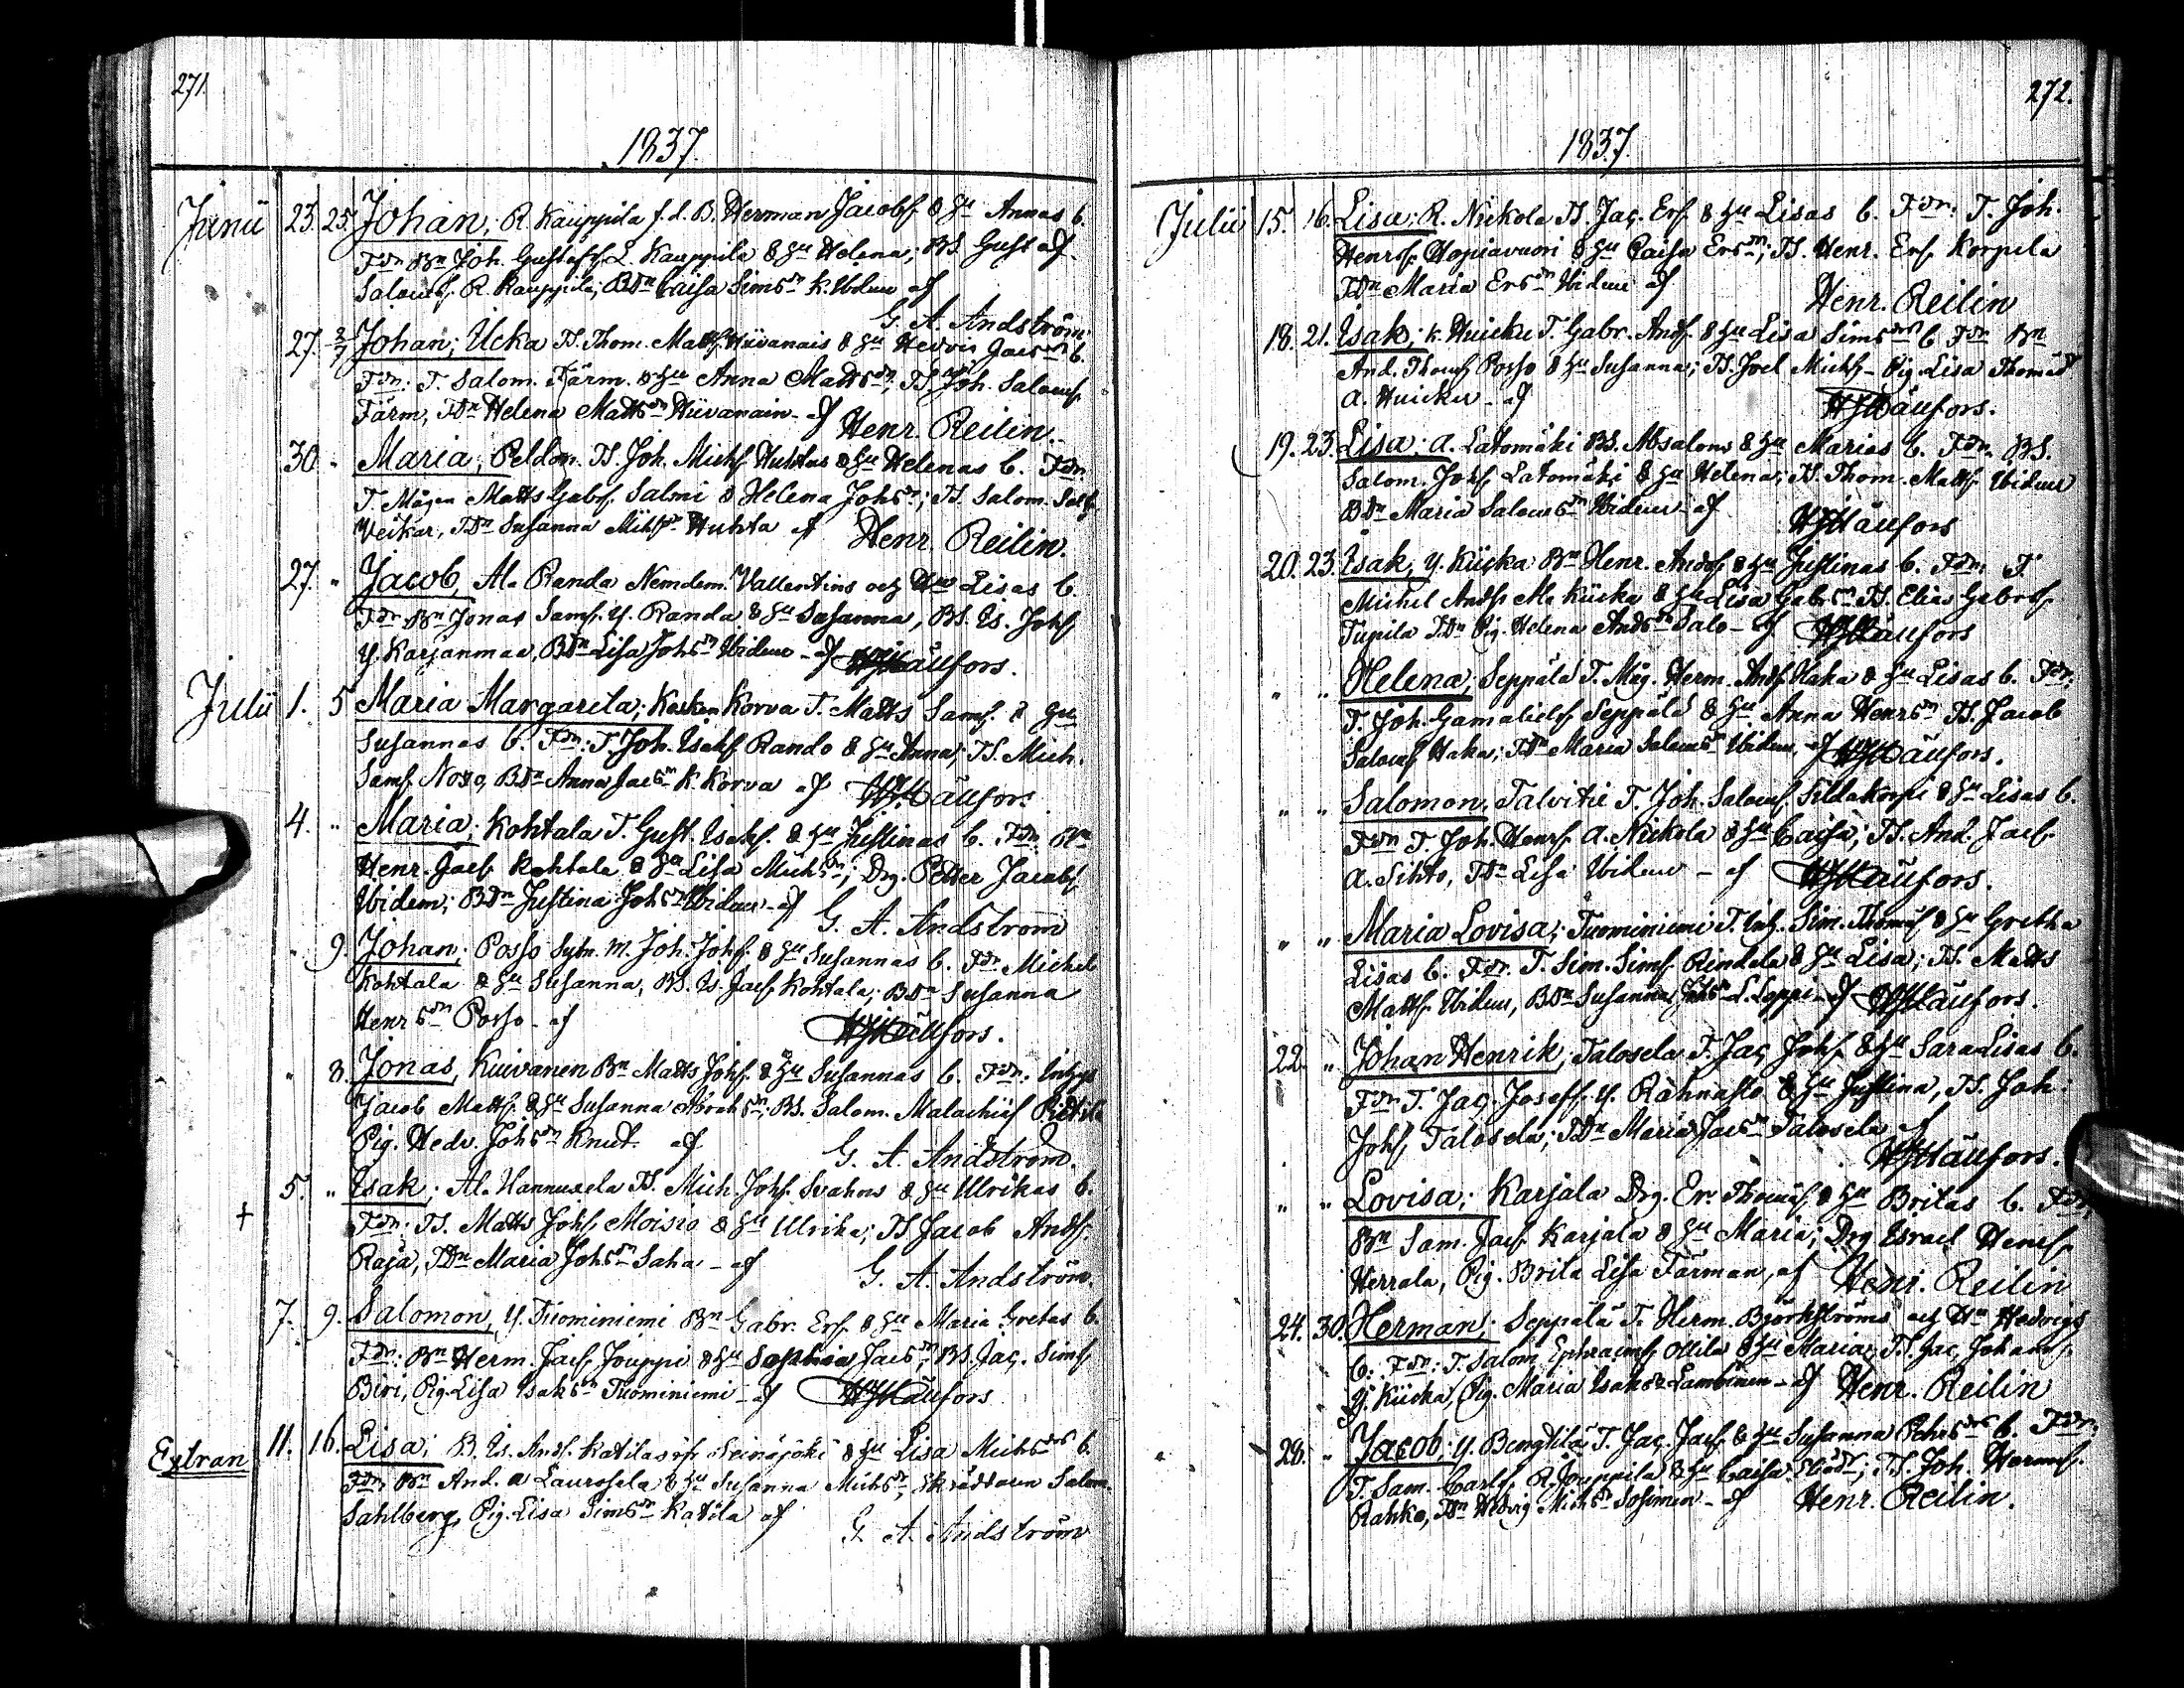 271.
1837.
Junii 23. 25. Johan; R. Kauppila f.d. B. Herman Jacobs. & Hu Annas b.
Fdr: Bn Joh. Gustafs. L. Kauppila & Hu Helena; BS. Gustaf
Saloms. R. Kauppila; BDr Caisa Simsdr K. Ibidem af
G. A. Andström.
27. 2/7 Johan; Ucka TS. Thom. Matts. Hiivanais & Hu Hedvig Jacsdrs b.
Fdr: T. Salom. Färm. & Hu Anna Mattsdr; TS. Joh. Saloms.
Färm, TDr Helena Mattsdr Hiivanain - af Henr. Reilin.
30. " Maria; Peldom. TS. Joh. Michs. Huhtas & Hu Helenas b. Fdr:
T. Mågen Matts Gabrs. Salmi & Helena Johsdr; TS. Salom. Sals.
Veikar, TDr Susanna Mihsdr Huhta af Henr. Reilin.
27. " Jacob, Al. Randa Nemdem. Vallentins och Hu Lisas b.
Fdr: Bn Jonas Sams. Y. Randa & Hu Susanna, BS. Is. Johs.
Y. Karjanmaa, BDr Lisa Johsdr Ibidem - af
Julii 1. 5 Maria Margareta; Kosken Korva T. Matts Sams. & Hu
Susannas b. Fdr: T. Joh. Isaks. Rando & Hu Anna; TS. Mich.
Sams. BDr Anna Jacsdr K. Korva af
4. " Maria; Kohtala T. Gust. Isaks. & Hu Justinas b. Fdr: Bn
Henr. Jacs. Kohtala & Hu Lisa Michsdr; Drg. Petter Jacobs.
Ibidem; BDr Justina Johsdr Ibidem - af G. A. Andström
" 9. Johan; Posso Sytn. M. Joh. Johs. & Hu Susannas b. Fdr: Michel
Kohtala & Hu Susanna; BS. Is. Jacs. Kohtala; BDr Susanna
Henrsdr Posso - af
" 8. Jonas, Kuivanen Bn Matts Johs. & Hu Susannas b. Fdr: Inhys
Jacob Matts. & Hu Susanna Abrahsdr; BS. Salom. Malachias
Pig. Hedv. Johsdr Knut. af G. A. Andström.
5. " Isak; Al. Hannuxela TS. Mich. Johs. Svahns & Hu Ulrikas b.
Fdr: TS. Matts Johs. Moisio & Hu Ulrika; TS. Jacob Ands.
Raja, TDr Maria Johsdr Saha - af G. A. Andström.
7. 9. Salomon, Y. Tuominiemi Bn Gabr. Ers. & Hu Maria Gretas b.
Fdr: Bn Herm. Jacs. Jouppi & Hu Sophia Jacsdr; BS. Jac. Sims.
Biri, Pig. Lisa Isaksdr Tuominiemi - af
Extran 11. 16. Lisa; B. Is. Ands. Katilas ifr. Seinäjoki & Hu Lisa Michsdrs b.
Fdr: Bn And. a Laurosela & Hu Susanna Michsdr; Skräddaren Salom.
Sahlberg, Pig. Lisa Simsdr Katila af G. A. Andström
272.
1837.
Julii 15. 16. Lisa; R. Nickola TS. Jac. Ers. & Hu Lisas b. Fdr: T. Joh.
Henrs. Hopiavuori & Hu Caisa Ersdr; TS. Henr. Ers. Korpela
TDr Maria Ersdr Ibidem af Henr. Reilin
18. 21. Isak; K. Huicku T. Gabr. Ands. & Hu Lisa Simsdrs b. Fdr: Bn
And. Thoms. Posso & Hu Susanna; TS. Joel Michs. - Pig. Lisa Thomasdr
a. Huicku - af
19. 23. Lisa; a. Latomäki BS. Absalons & Hu Marias b. Fdr: BS.
Salom. Johs. Latomäki & Hu Helena; TS. Thom. Matts. Ibidem
BDr Maria Salomsdr Ibidem - af
20. 23. Isak; Y. Kiicka Bn Henr. Ands. & Hu Justinas b. Fdr: T.
Michel Ands. Al. Kiicka & Hu Lisa Gabrsdr TS. Elias Gabrs.
Tupila TDr Pig. Helena Andsdr Salo - af
" " Helena; Seppälä T. Måg. Herm. Ands. Haka & Hu Lisas b. Fdr:
T. Joh. Gamaliels. Seppälä & Hu Anna Henrsdr TS. Jacob
Saloms. Haka; TDr Maria Salomsdr Ibidem - af
" " Salomon, Talvitie T. Joh. Saloms. Sillakorpi & Hu Lisas b.
Fdr: T. Joh. Henrs. a. Nickola & Hu Caisa; TS. And. Jacs.
a. Sihto, TDr Lisa Ibidem - af
" " Maria Lovisa; Tuominiemi T. Inh. Sim. Thomas. & Hu Gretha
Lisas b. Fdr: T. Sim. Sims. Rindala & Hu Lisa; TS. Matts
Matts. Ibidem, BDr Susanna Johsdr L. Loppi - af
22. " Johan Henrik; Talosela T. Jac. Johs. & Hu Sara Lisas b.
Fdr: T. Jac. Josefs. Y. Råhnasto & Hu Justina, TS. Joh:
Johs. Talosela; TDr Maria Jacsdr Talosela af
" " Lovisa; Karjala Drg. Er. Thomas. & Hu Britas b. Fdr:
Bn Sam. Jacs. Karjala & Hu Maria; Drg Israel Henrs.
Herrala, Pig. Brita Lisa Färman, af Henr. Reilin
24. 30. Herman; Seppälä T. Herm. Björkströms och Hu Hedvigs
b. Fdr: T. Salom. Ephraims. Ollila & Hu Maria; TS. Jac. Johans.
Y. Kiicka, Pig. Maria Isaksdr Lambinen - af Henr. Reilin
28. " Jacob; Y. Bengtilä T. Jac. Jacs. & Hu Susanna Pehrsdrs b. Fdr:
T. Sam. Carls. R. Jouppila & Hu Caisa Eliædr; TS. Joh. Hermans.
Rahko, TDr Hedvig Michsdr Sosimen - af Henr. Reilin.